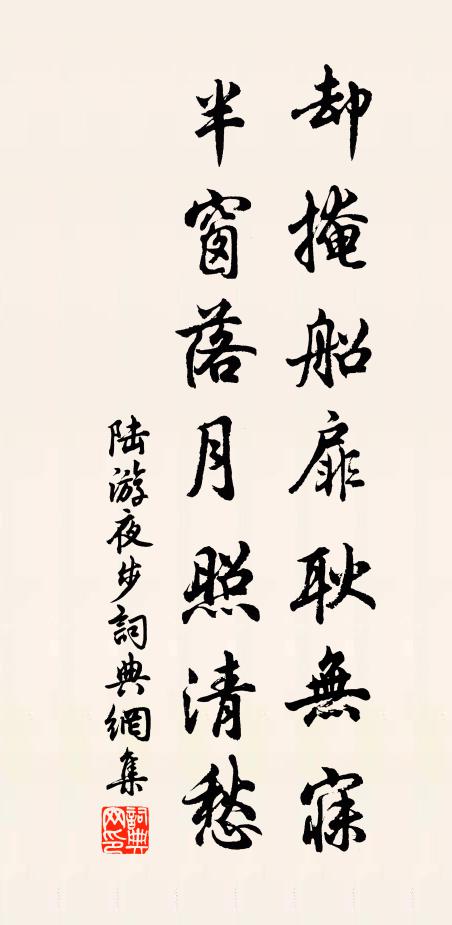 却掩船扉耿無寐
半窗落月照清愁
陸游夜步詞典網集
詞典网印